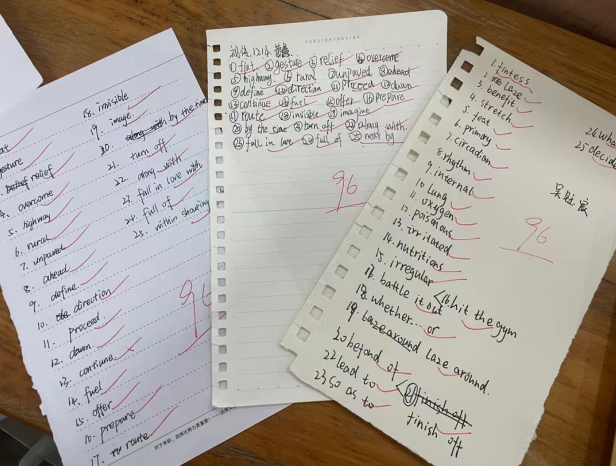 18. invisible
19. image
20. by the time
21. turn off
22. along with
23. fall in love with
24. full of
25. within shouting
relief
4. overcome
5. highway
6. rural
7. unpaved
8. ahead
9. define
10. direction
11. proceed
12. dawn
13. contiune
14. fuel
15. offer
16. prepare
17. route
① flat ② gesture ③ relief ④ overcome
⑤ highway ⑥ rural ⑦ unpaved ⑧ ahead
⑨ define ⑩ direction ⑪ proceed ⑫ dawn
⑬ continue ⑭ fuel ⑮ offer ⑯ prepare
⑰ route ⑱ invisible ⑲ imagine
⑳ by the time turn off along with
fall in love full of next by
96
1. fitness
2. laze
3. benefit
4. stretch
5. foat
6. primary
7. circadian
8. rhythm
9. internal
10. lung
11. oxygen
12. poisonous
13. irritated
14. nutritions
15. irregular
17. battle it out hit the gym
18. whether... or
19. laze around laze around.
20 beford of
22 lead to finish off
23 so as to finish off
25 decid
96
96